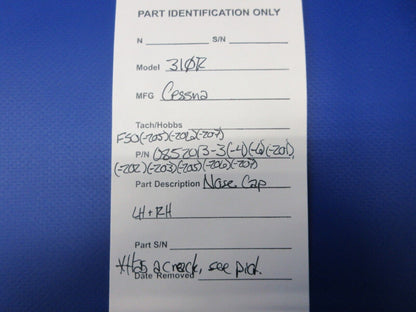 PART IDENTIFICATION ONLY
N S/N
Model 310R
MFG Cessna
Tach/Hobbs
FSO(-205)(-206)(-207)
P/N 0852013-3(-4)(-6)(-201)
(-202)(-203)(-205)(-206)(-207)
Part Description Nose Cap
LH + RH
Part S/N
*Has a crack, see pic.
Date Removed